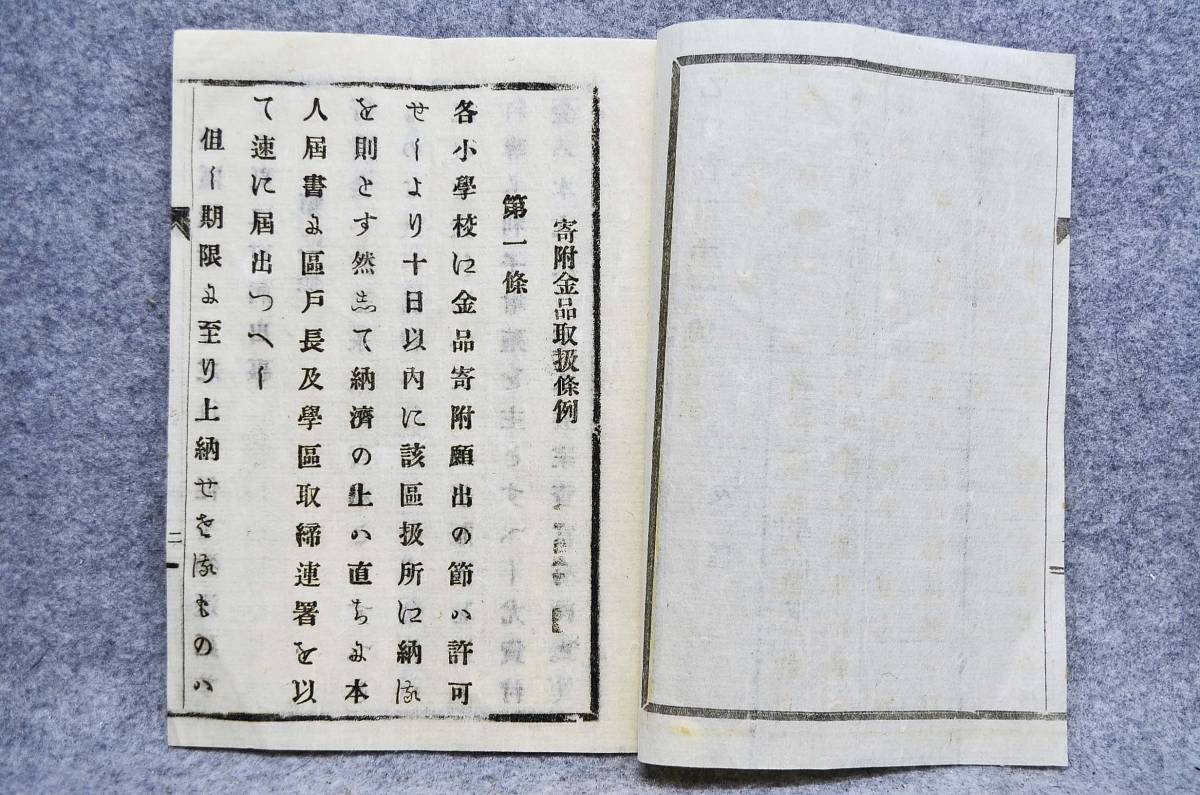 寄附金品取扱條例
第一條
各小學校に金品寄附願出の節ハ許可
せしより十日以内に該區扱所に納る
を則とす然して納濟の上ハ直ちに本
人屆書に區戸長及學區取締連署を以
て速に屆出つへし
但し期限に至り上納せさるものハ
二